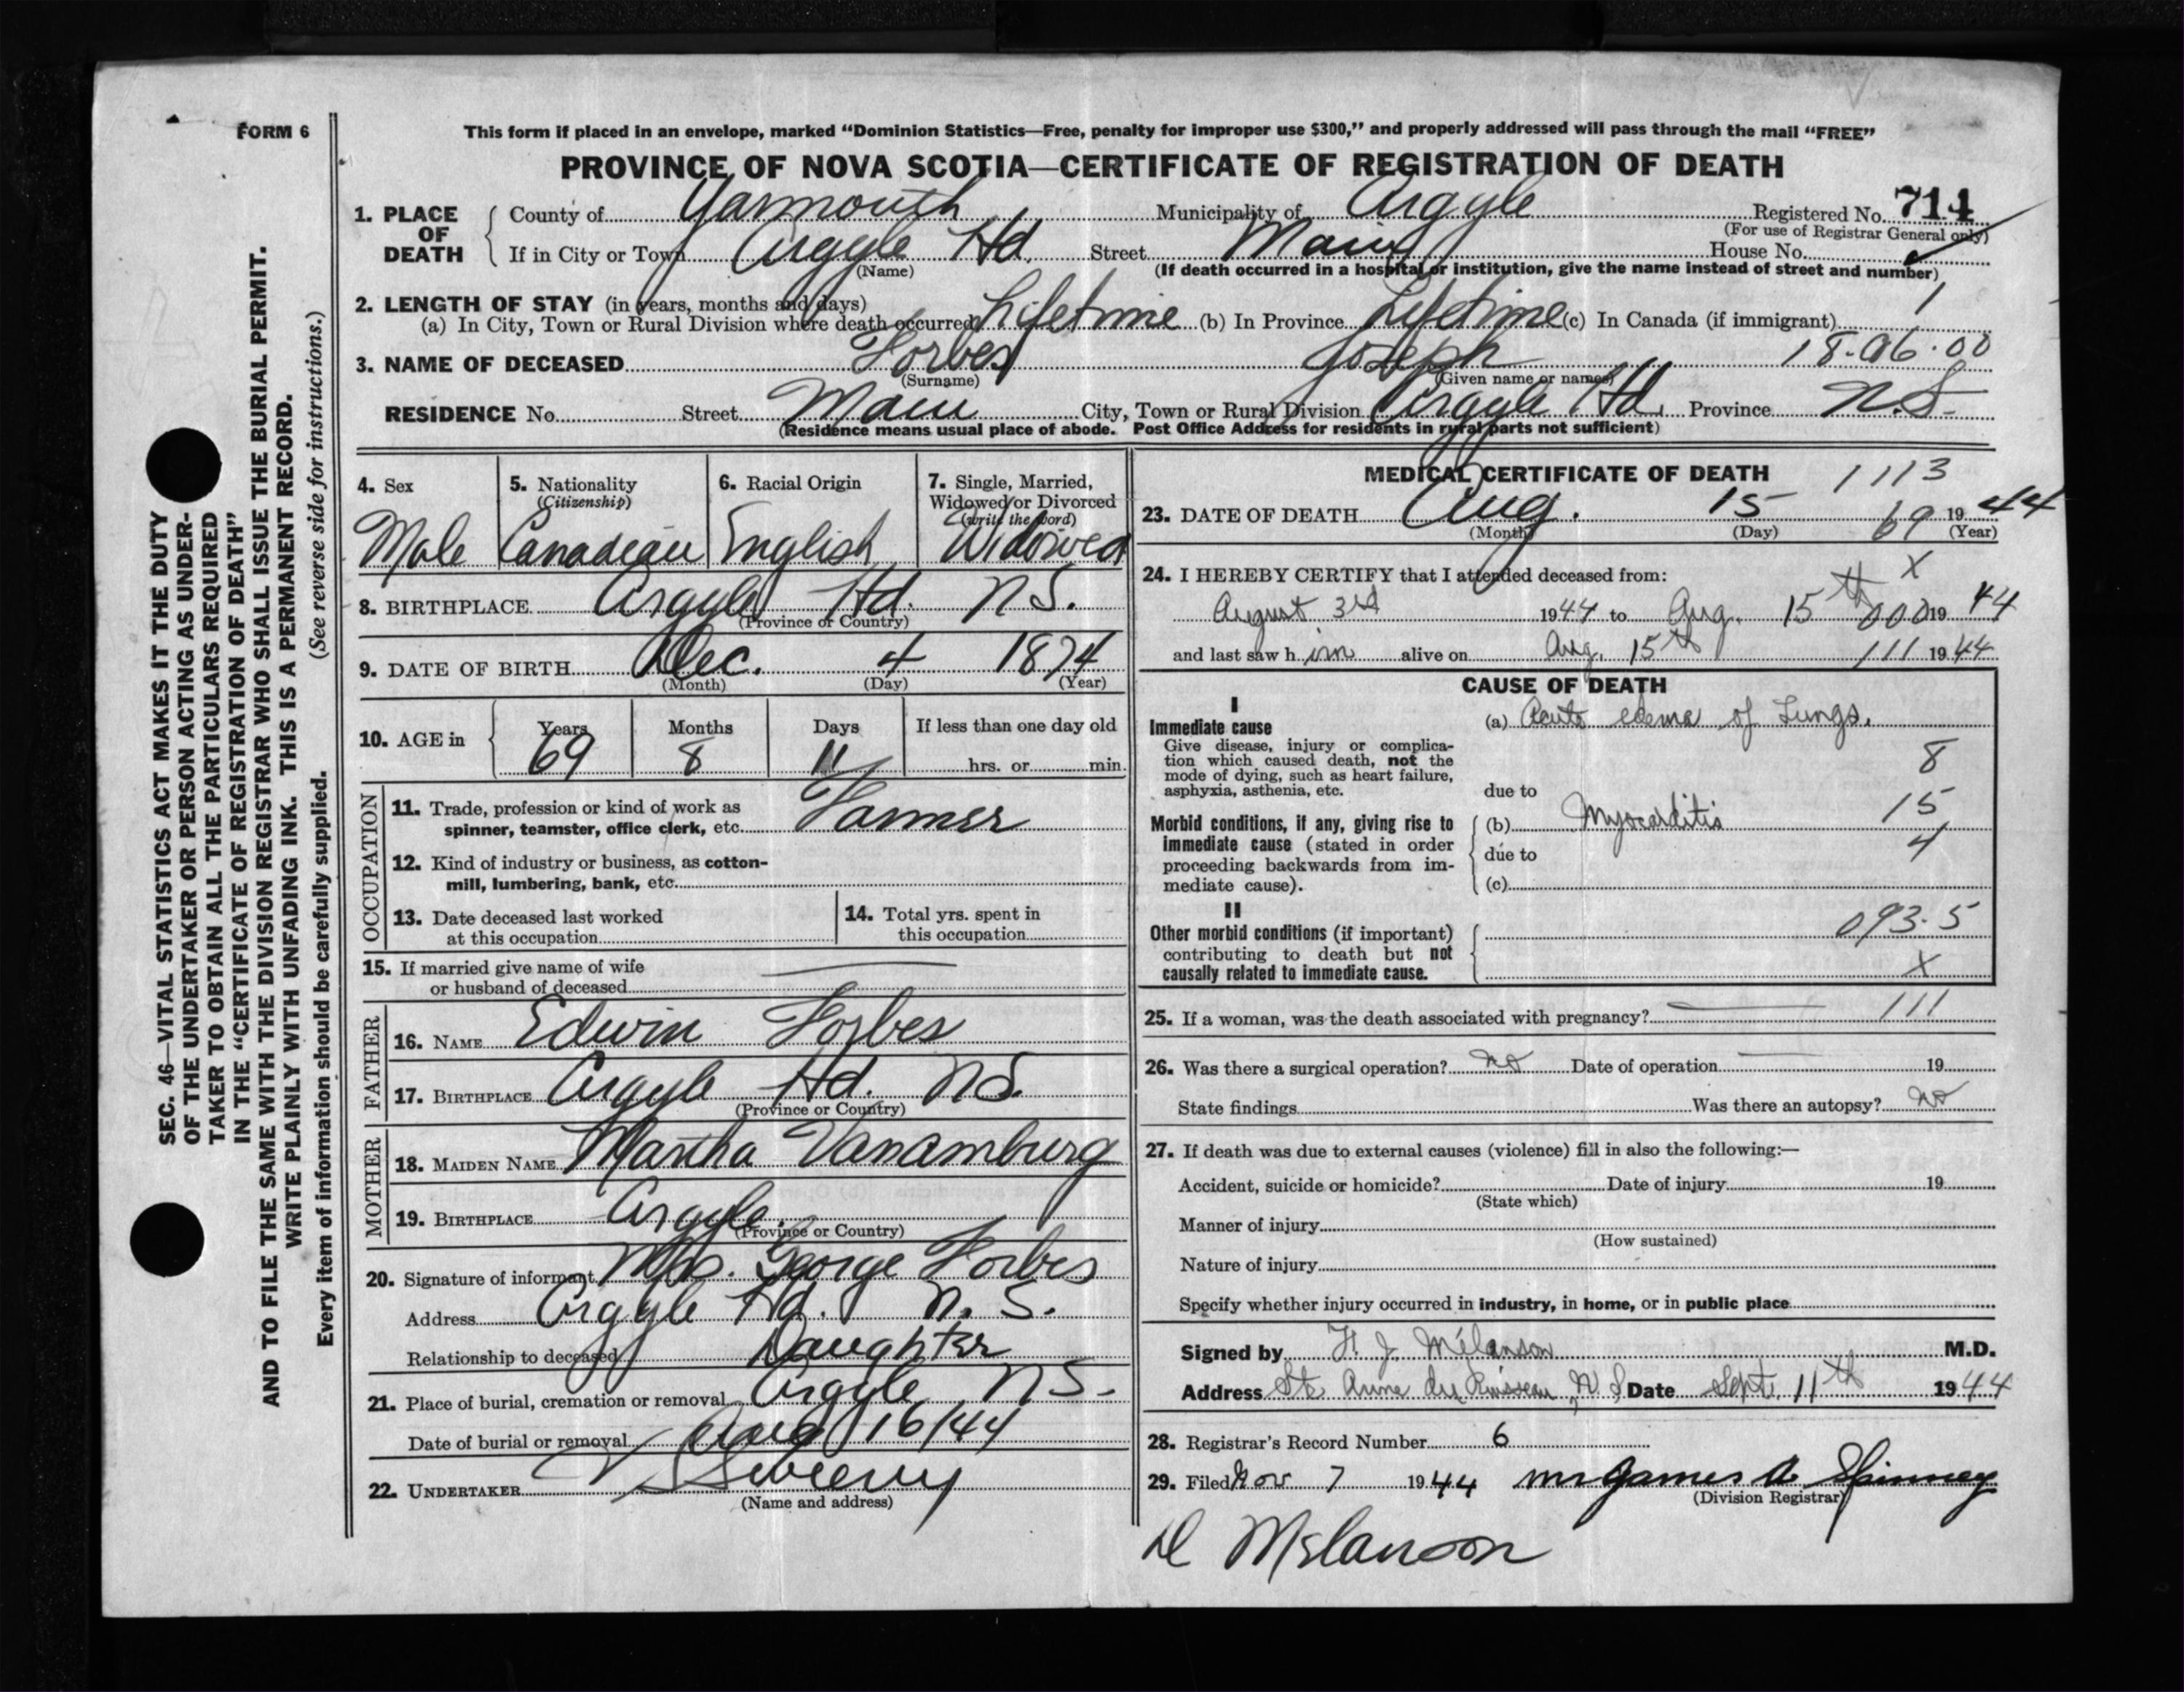 FORM 6
This form if placed in an envelope, marked “Dominion Statistics—Free, penalty for improper use $300,” and properly addressed will pass through the mail “FREE”
PROVINCE OF NOVA SCOTIA—CERTIFICATE OF REGISTRATION OF DEATH
1. PLACE OF DEATH County of Yarmouth Municipality of Argyle Registered No. 714
(For use of Registrar General only)
If in City or Town Argyle Hd. Street Main House No.
(Name) (If death occurred in a hospital or institution, give the name instead of street and number)
2. LENGTH OF STAY (in years, months and days) 1
(a) In City, Town or Rural Division where death occurred Lifetime (b) In Province Lifetime (c) In Canada (if immigrant)
3. NAME OF DECEASED Forbes Joseph 18-06-00
(Surname) (Given name or names)
RESIDENCE No. Street Main City, Town or Rural Division Argyle Hd. Province N.S.
(Residence means usual place of abode. Post Office Address for residents in rural parts not sufficient)
4. Sex 5. Nationality (Citizenship) 6. Racial Origin 7. Single, Married, Widowed or Divorced (write the word)
Male Canadian English Widowed
8. BIRTHPLACE Argyle Hd. N.S.
(Province or Country)
9. DATE OF BIRTH Dec. 4 1874
(Month) (Day) (Year)
10. AGE in Years Months Days If less than one day old
69 8 11 hrs. or min.
OCCUPATION
11. Trade, profession or kind of work as
spinner, teamster, office clerk, etc. Farmer
12. Kind of industry or business, as cotton-
mill, lumbering, bank, etc.
13. Date deceased last worked
at this occupation
14. Total yrs. spent in
this occupation
15. If married give name of wife
or husband of deceased
FATHER
16. NAME Edwin Forbes
17. BIRTHPLACE Argyle Hd. N.S.
(Province or Country)
MOTHER
18. MAIDEN NAME Martha Vanamburg
19. BIRTHPLACE Argyle.
(Province or Country)
20. Signature of informant Mrs. George Forbes
Address Argyle Hd. N. S.
Relationship to deceased Daughter
21. Place of burial, cremation or removal Argyle N S.
Date of burial or removal Aug 16/44
22. UNDERTAKER V S Sweeny
(Name and address)
MEDICAL CERTIFICATE OF DEATH 1113
23. DATE OF DEATH Aug. 15 69 1944
(Month) (Day) (Year)
24. I HEREBY CERTIFY that I attended deceased from: X
August 3rd 1944 to Aug. 15th 000 1944
and last saw him alive on Aug. 15th 111 1944
CAUSE OF DEATH
I
Immediate cause (a) Acute edema of Lungs.
Give disease, injury or complica-
tion which caused death, not the 8
mode of dying, such as heart failure,
asphyxia, asthenia, etc. due to
Morbid conditions, if any, giving rise to (b) Myocarditis 15
immediate cause (stated in order
proceeding backwards from im- due to 4
mediate cause). (c)
II
Other morbid conditions (if important) 093.5
contributing to death but not
causally related to immediate cause. X
25. If a woman, was the death associated with pregnancy? 111
26. Was there a surgical operation? no Date of operation 19
State findings Was there an autopsy? no
27. If death was due to external causes (violence) fill in also the following:—
Accident, suicide or homicide? Date of injury 19
(State which)
Manner of injury
(How sustained)
Nature of injury
Specify whether injury occurred in industry, in home, or in public place
Signed by H. J. Mélanson M.D.
Address Ste Anne du Ruisseau, N S Date Sept. 11th 1944
28. Registrar's Record Number 6
29. Filed Nov 7 1944 Mrs James A Spinney
(Division Registrar)
Melanson
SEC. 46—VITAL STATISTICS ACT MAKES IT THE DUTY
OF THE UNDERTAKER OR PERSON ACTING AS UNDER-
TAKER TO OBTAIN ALL THE PARTICULARS REQUIRED
IN THE “CERTIFICATE OF REGISTRATION OF DEATH”
AND TO FILE THE SAME WITH THE DIVISION REGISTRAR WHO SHALL ISSUE THE BURIAL PERMIT.
WRITE PLAINLY WITH UNFADING INK. THIS IS A PERMANENT RECORD.
Every item of information should be carefully supplied. (See reverse side for instructions.)